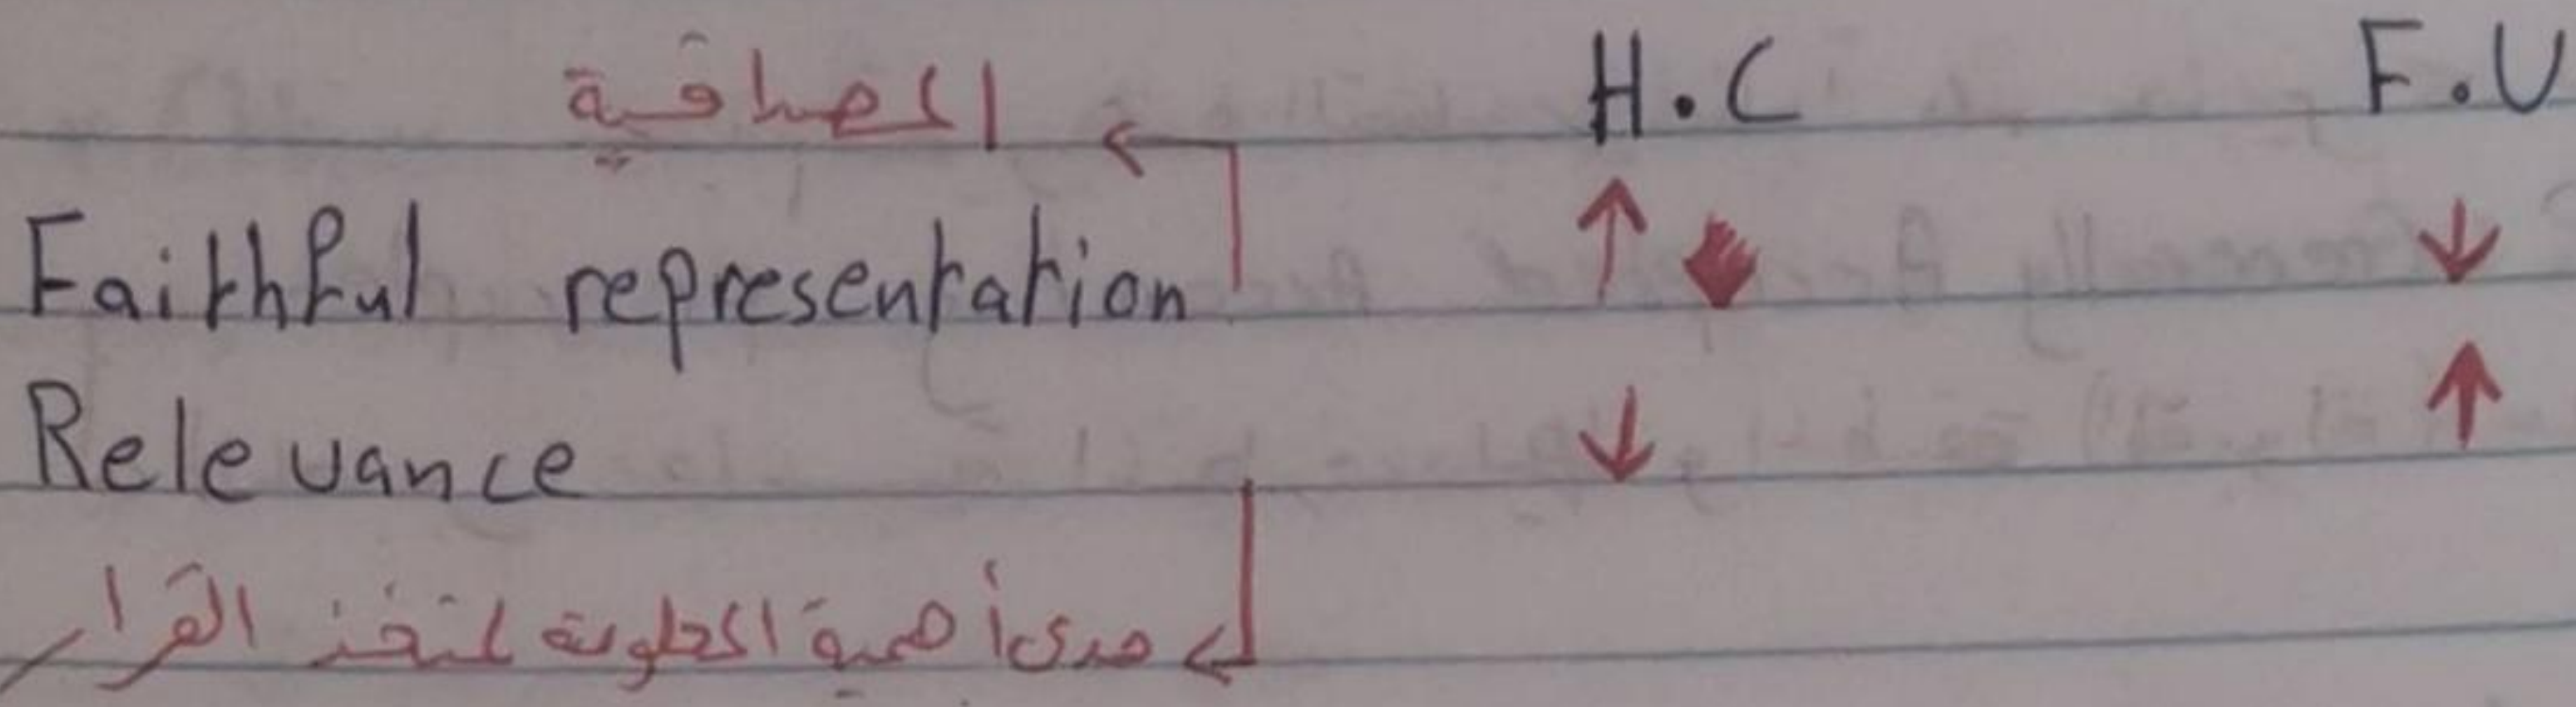 المصداقية ← H.C F.V
Faithful representation ↑ ↓
Relevance ↓ ↑
← مدى أهمية المعلومة لمتخذ القرار